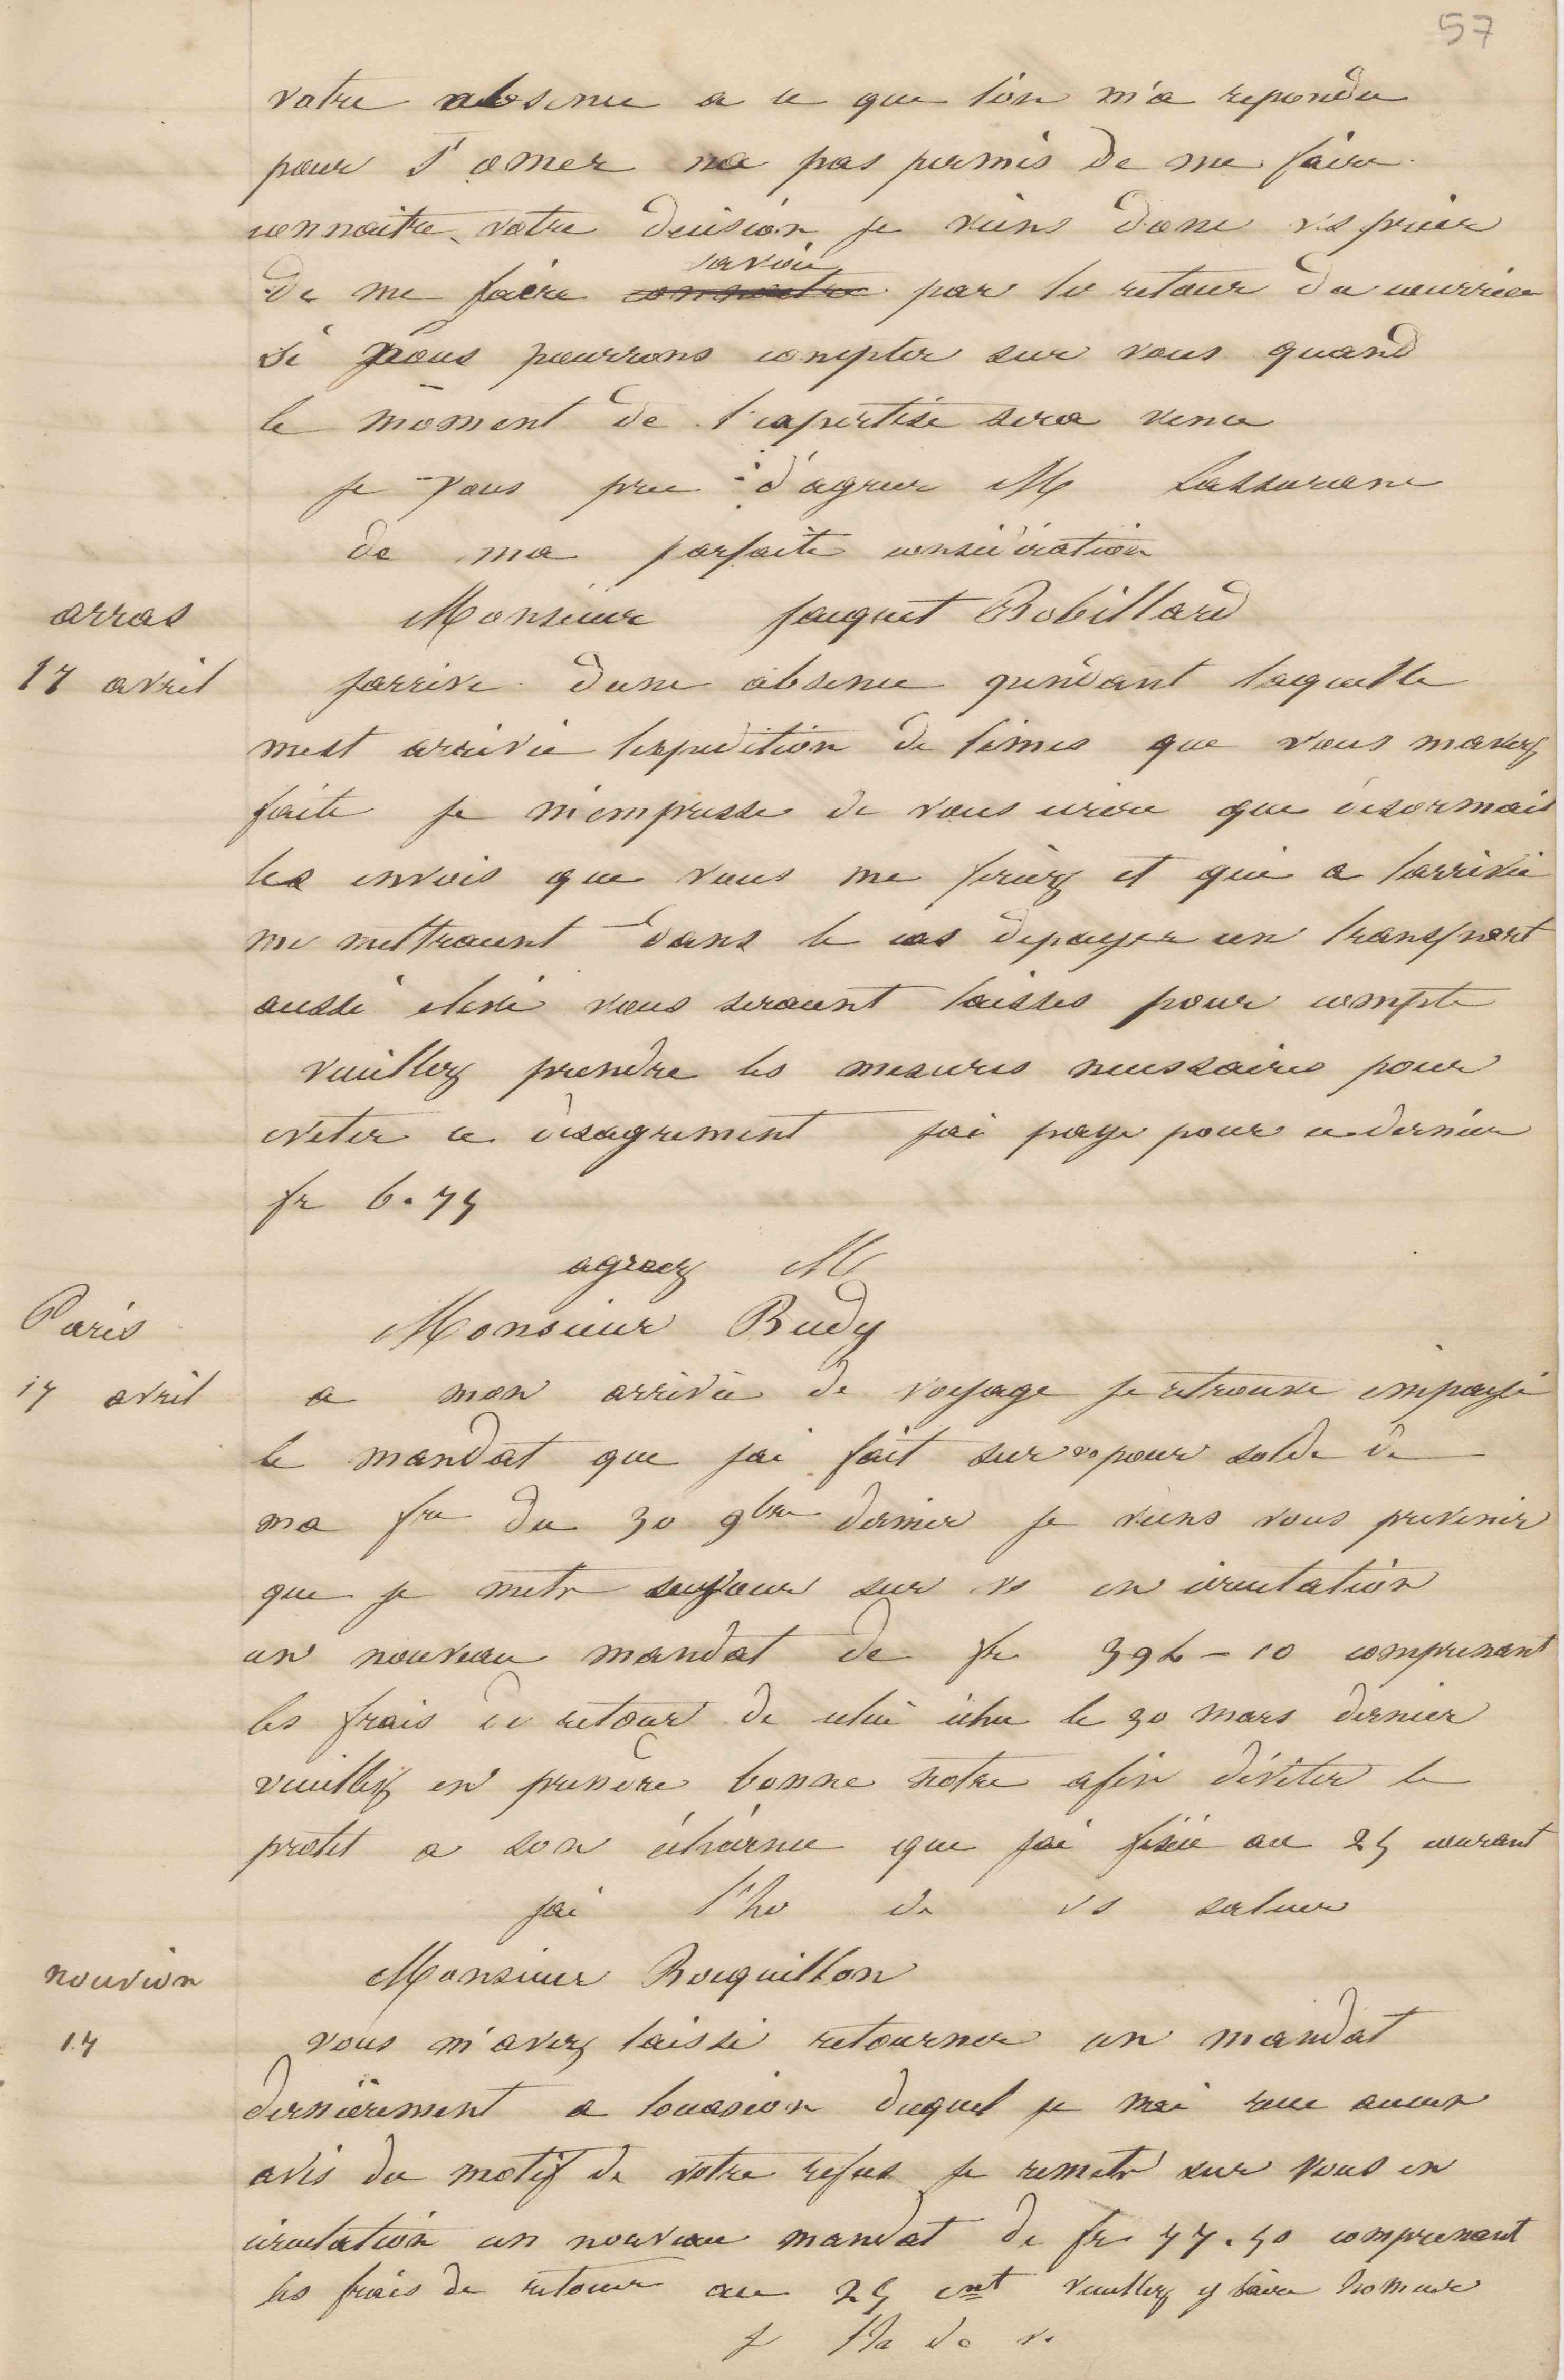 57
votre absence a ce que l'on m'a repondu
pour St omer na pas permis de me faire
connaitre votre decision je viens donc vs prier
savoir
de me faire connaitre par le retour du courrier
si nous pourrons compter sur vous quand
le moment de l'expertise sera venu
je vous prie d'agreer M Lassurance
de ma parfaite consideration
arras Monsieur fauquet Robillard
17 avril jarrive dune absence pendant laquelle
mest arrivée lexpedition de limes que vous mavez
faite je m'empresse de vous ecrire que desormais
les envois que vous me feriez et qui a larrivée
me mettraient dans le cas depayer un transport
aussi elevé vous seraient laissés pour compte
veuillez prendre les mesures necessaires pour
eviter ce desagrement jai payé pour ce dernier
fr 6.75
agreez M
Paris Monsieur Budy
17 avril a mon arrivée de voyage je retrouve impayé
le mandat que jai fait sur vs pour solde de
ma fre du 30 9bre dernier je viens vous prevenir
que je mets sur vs en circulation
un nouveau mandat de fr 396-10 comprenant
les frais de retour de celui echu le 30 mars dernier
veuillez en prendre bonne notre afin déviter le
protet a son échéance que jai fixée au 25 courant
jai l'ho de vs saluer
nouvion Monsieur Bocquillon
17 vous m'avez laissé retourner un mandat
dernièrement a loccasion duquel je nai recu aucun
avis du motif de votre refus je remets sur vous en
circulation un nouveau mandat de fr 77.50 comprenant
les frais de retour au 25 cnt veuillez y faire honneur